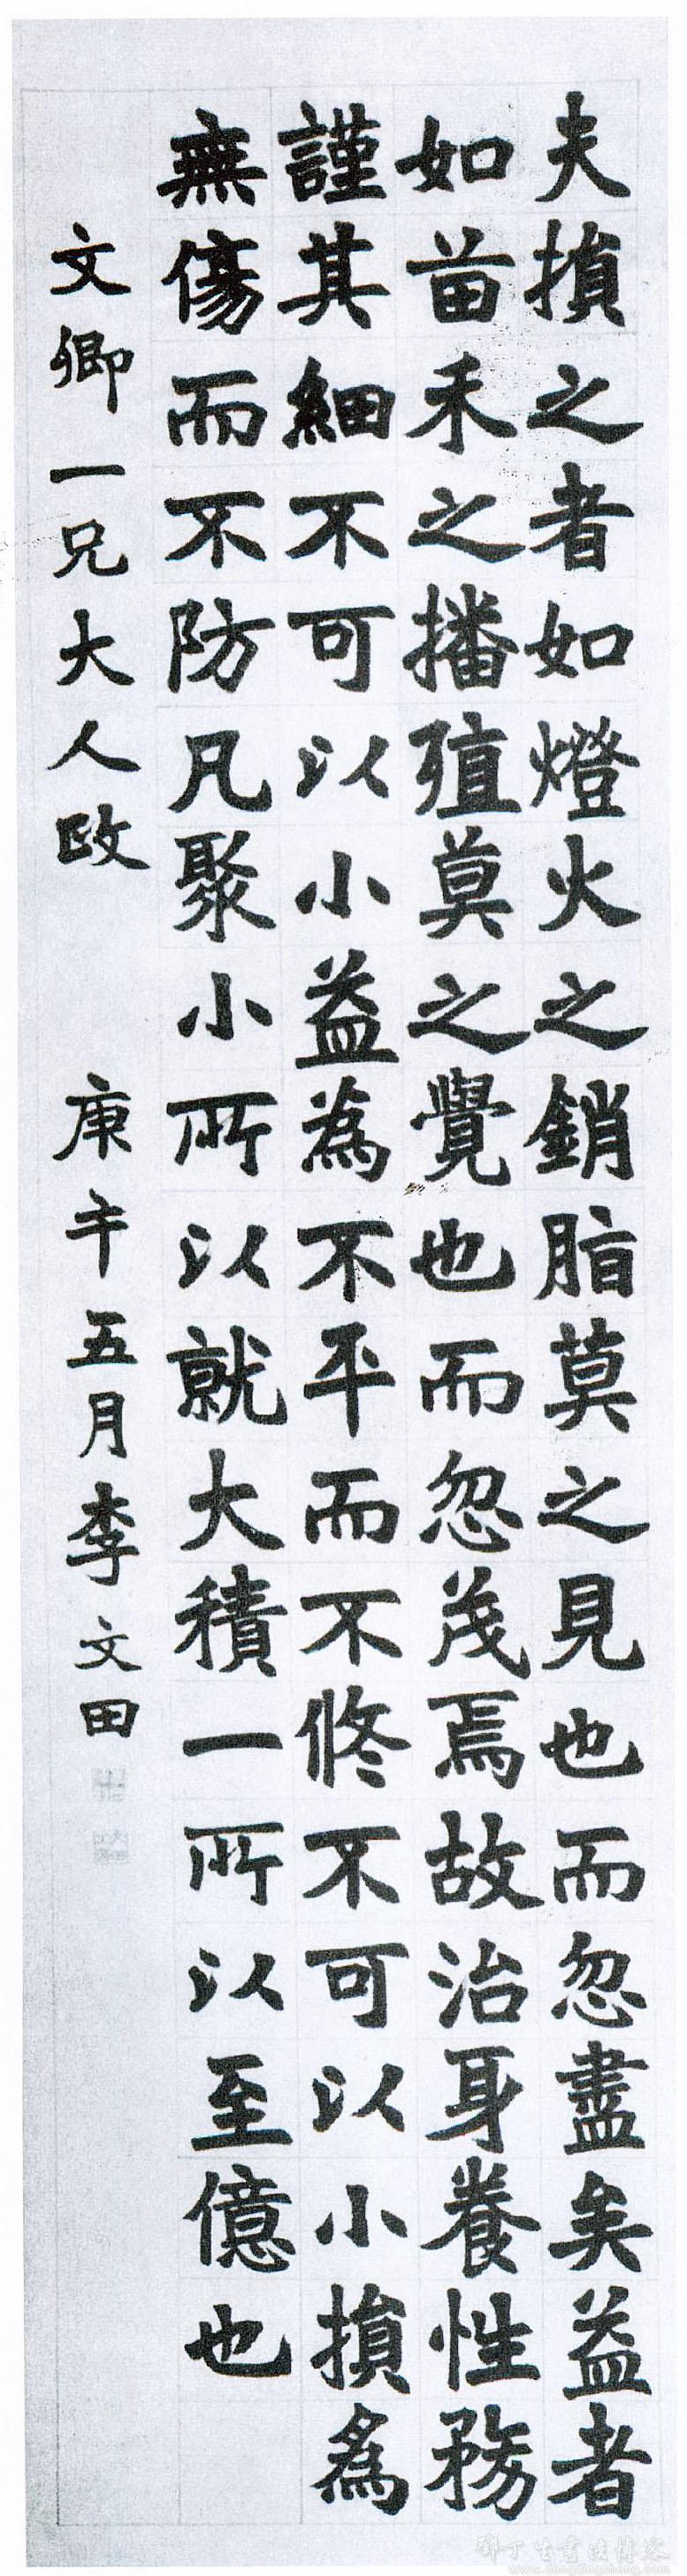 夫損之者如燈火之銷脂莫之見也而忽盡矣益者
如苗禾之播殖莫之覺也而忽茂焉故治身養性務
謹其細不可以小益為不平而不修不可以小損為
無傷而不防凡聚小所以就大積一所以至億也
文卿一兄大人政
庚午五月李文田